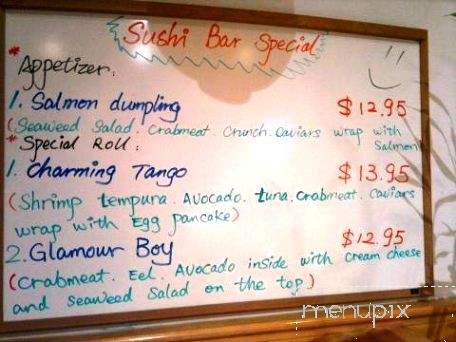 Sushi Bar Special
* Appetizer:
1. Salmon dumpling $12.95
(Seaweed Salad. Crabmeat. Crunch. Caviars wrap with Salmon)
* Special Roll:
1. Charming Tango $13.95
(Shrimp tempura. Avocado. tuna. Crabmeat. Caviars
wrap with Egg pancake)
2. Glamour Boy $12.95
(Crabmeat. Eel. Avocado inside with cream cheese
and seaweed salad on the top.)
menupix